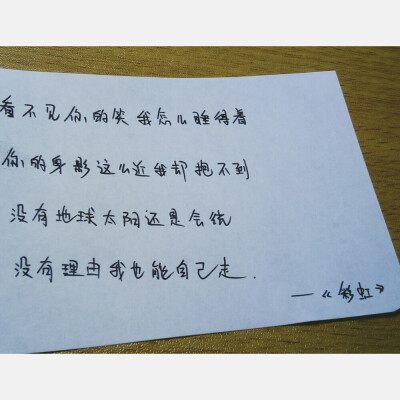 看不见你的笑我怎么睡得着
你的身影这么近我却抱不到
没有地球太阳还是会绕
没有理由我也能自己走.
—《彩虹》